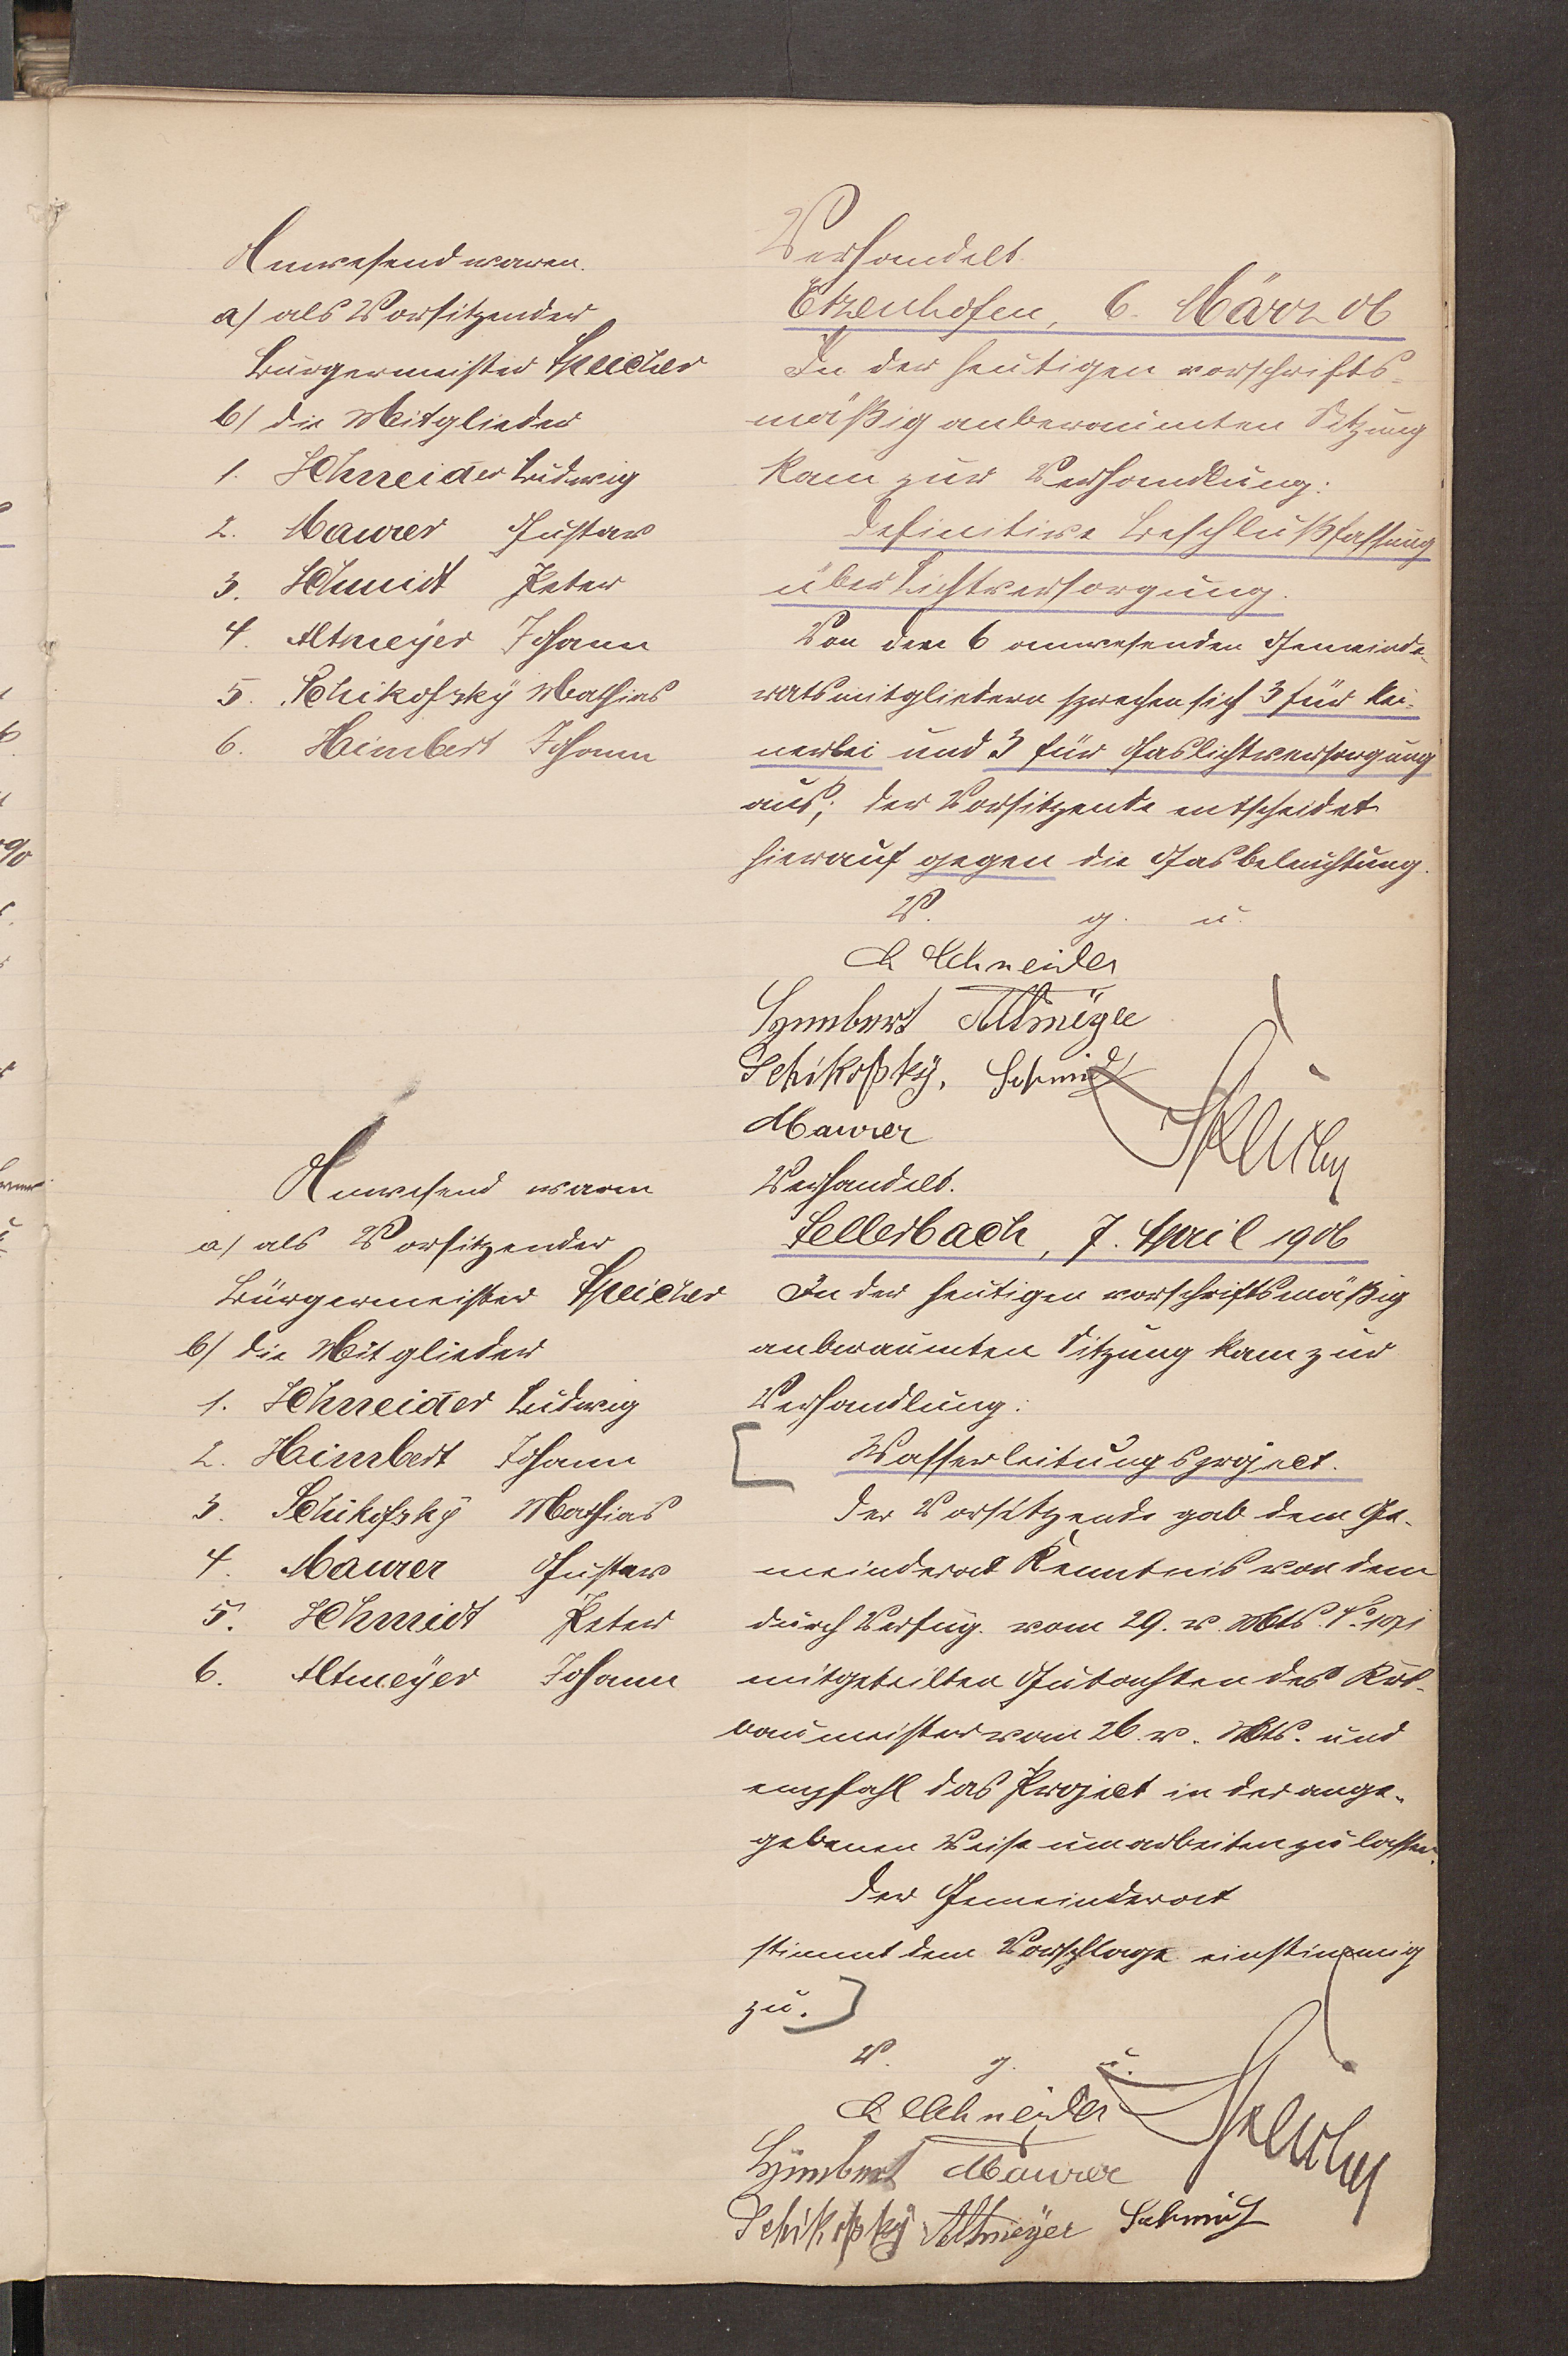 Anwesend waren.
a) als Vorsitzender
Bürgermeister Speicher
b) die Mitglieder
1. Schneider Ludwig
2. Maurer Gustav
3. Schmidt Peter
4. Altmeyer Johann
5. Schikofsky Mathias
6. Heimbert Johann
Verhandelt
Etzenhofen, 6. März 06
In der heutigen vorschrifts-
mäßig anberaumten Sitzung
kam zur Verhandlung:
Definitive Beschlußfassung
über Lichtversorgung.
Von den 6 anwesenden Gemeinde-
ratsmitgliedern sprechen sich 3 für kei-
nerlei und 3 für Gaslichtversorgung
aus; der Vorsitzende entscheidet
hierauf gegen die Gasbeleuchtung.
V. g. u.
L Schneider
Hymbert Altmeyer
Schikofsky. Schmidt
Maurer Speicher
Anwesend waren
a) als Vorsitzender
Bürgermeister Speicher
b) die Mitglieder
1. Schneider Ludwig
2. Heimbert Johann
3. Schikofsky Mathias
4. Maurer Gustav
5. Schmidt Peter
6. Altmeyer Johann
Verhandelt.
Sellerbach, 7. April 1906
In der heutigen vorschriftsmäßig
anberaumten Sitzung kam zur
Verhandlung:
[ Wasserleitungsproject.
Der Vorsitzende gab dem Ge-
meinderat Kenntnis von dem
durch Verfüg. vom 29. v. Mts.
mitgeteilten Gutachten des
baumeister vom 26. v. Mts. und
empfahl das Project in der ange-
gebenen Weise umarbeiten zu lassen.
Der Gemeinderat
stimmt dem Vorschlage einstimmig
zu. ]
V. g. u.
L Schneider Speicher
Hymbert Maurer
Schikofsky Altmeyer Schmidt